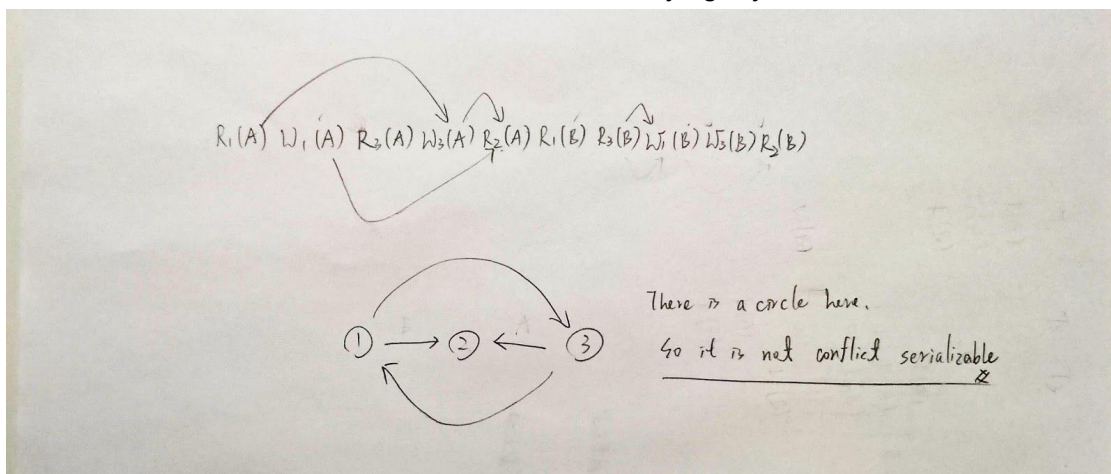 R₁(A) W₁(A) R₃(A) W₃(A) R₂(A) R₁(B) R₃(B) W₁(B) W₃(B) R₂(B)
There is a circle here.
① ② ③
So it is not conflict serializable